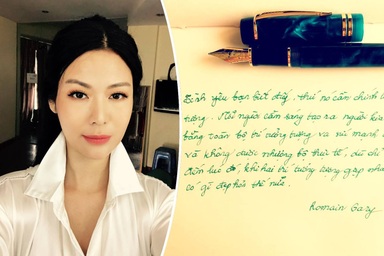 Tình yêu bạn biết đấy, thứ nó cần chính là
tưởng. Mỗi người cần sáng tạo ra người kia
bằng toàn bộ trí tưởng tượng và sức mạnh
và không được nhượng bộ thực tế, dù chỉ
lúc đó, khi hai trí tưởng tượng gặp nhau
có gì đẹp hơn thế nữa.
Romain Gary